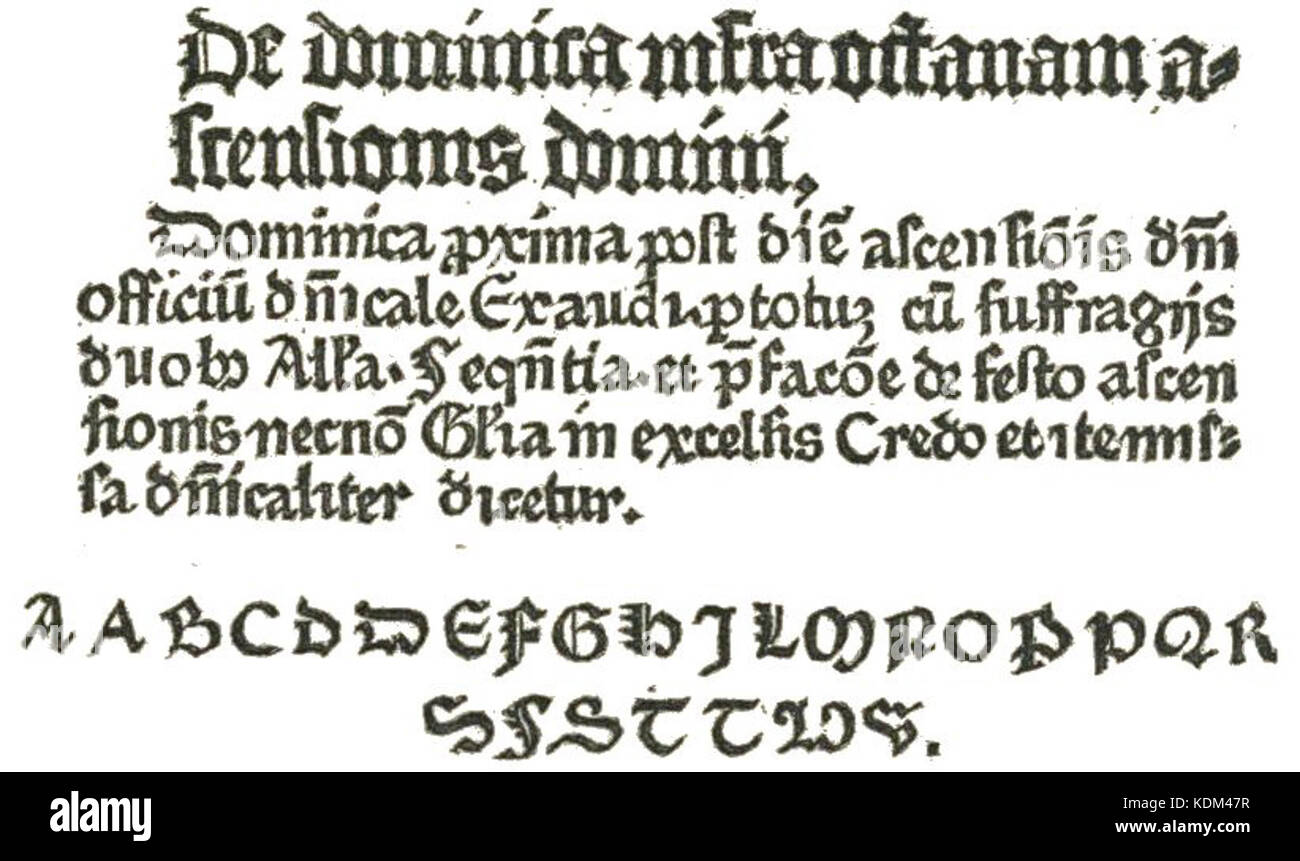 De dominica infra octauam a-
scensionis domini,
Dominica ꝓxima post diē ascensiōis dn̄i
officiū dn̄icale Exaudi ꝑ totuꝫ cū suffragijs
duobꝫ All'a. Seqn̄tia et p̄facōe de festo ascen
sionis necnō Gl'ia in excelsis Credo et ite mis-
sa dn̄icaliter dicetur.
A A B C D D E F G H J L M N O P P Q R
S S S T T V S.
alamy
Image ID: KDM47R
www.alamy.com